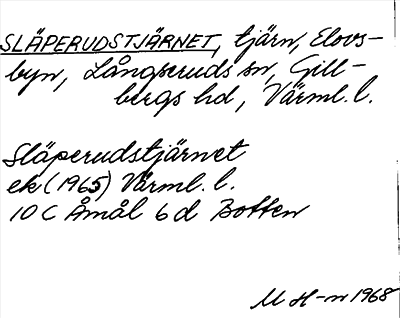 SLÄPERUDSTJÄRNET, tjärn, Elovs-
byn, Långseruds sn, Gill-
bergs hd, Värml. l.
Släperudstjärnet
ek (1965) Värml. l.
10 C Åmål 6 d Botten
M H-n 1968